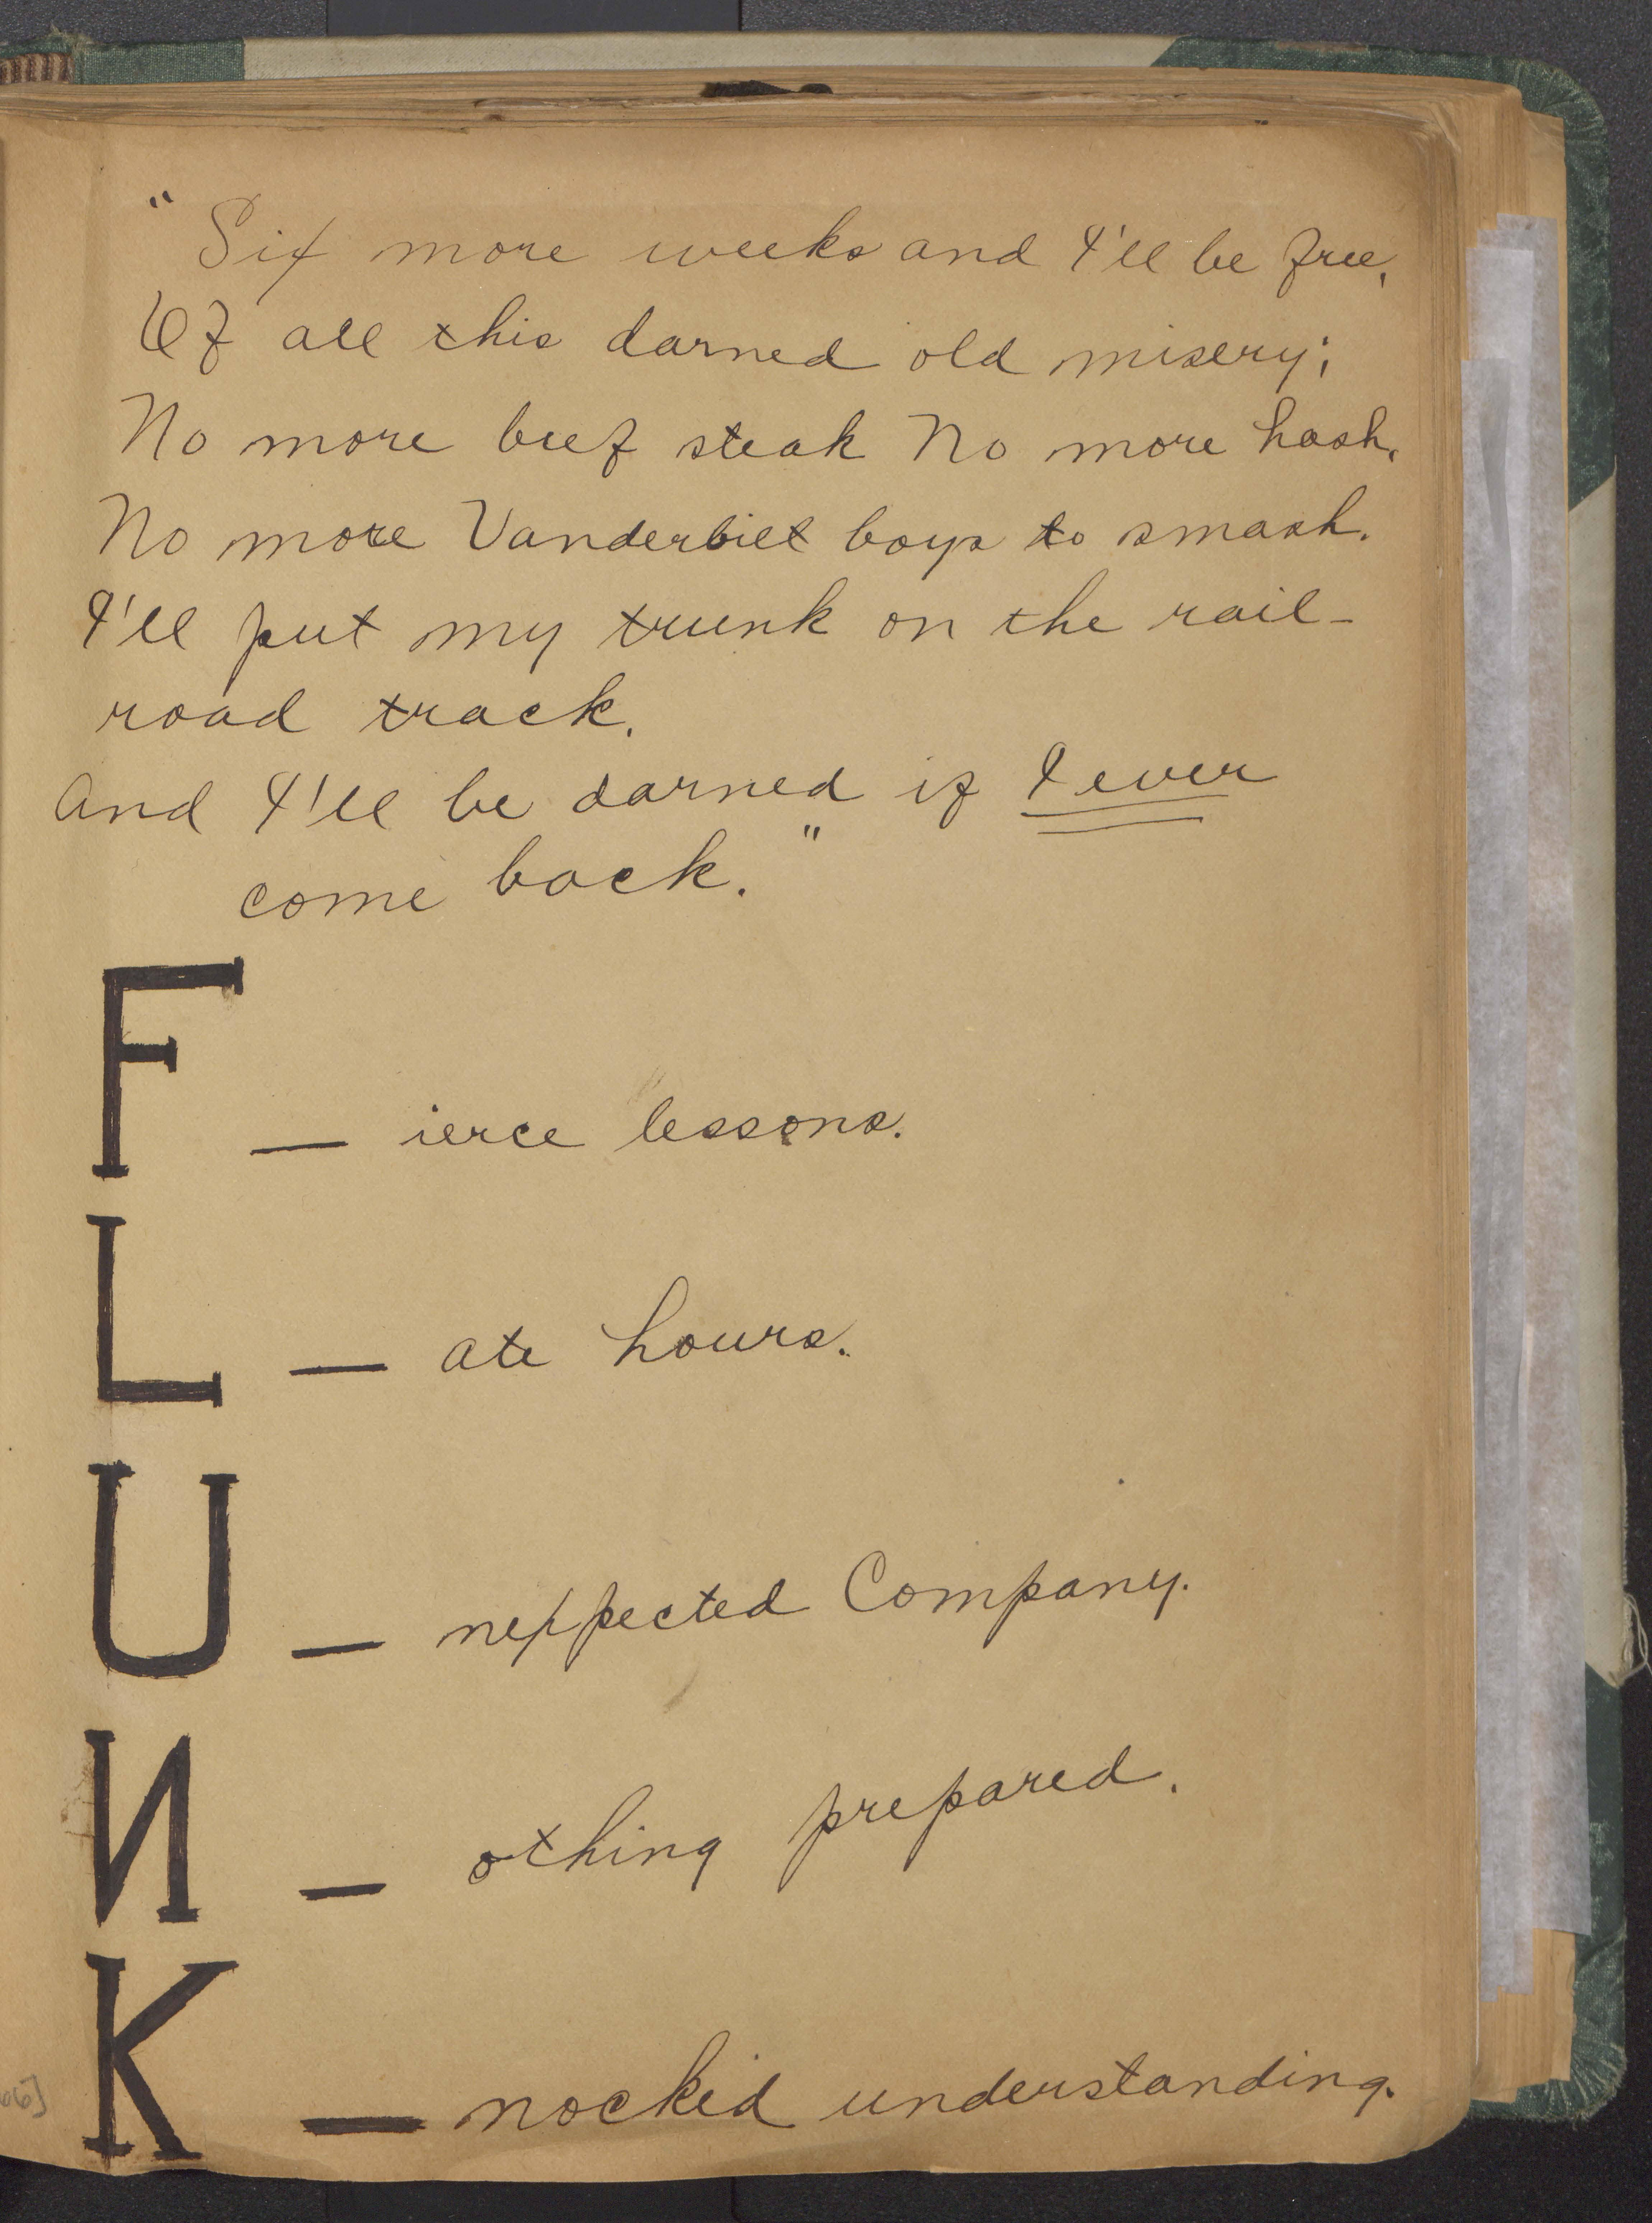 "Six more weeks and I'll be free,
Of all this darned old misery;
No more beef steak No more hash,
No more Vanderbilt boys to smash.
I'll put my trunk on the rail-
road track,
And I'll be darned if I ever
come back."
F — ierce lessons.
L — ate hours.
U — nexpected Company.
N — othing prepared.
K — nocked understanding.